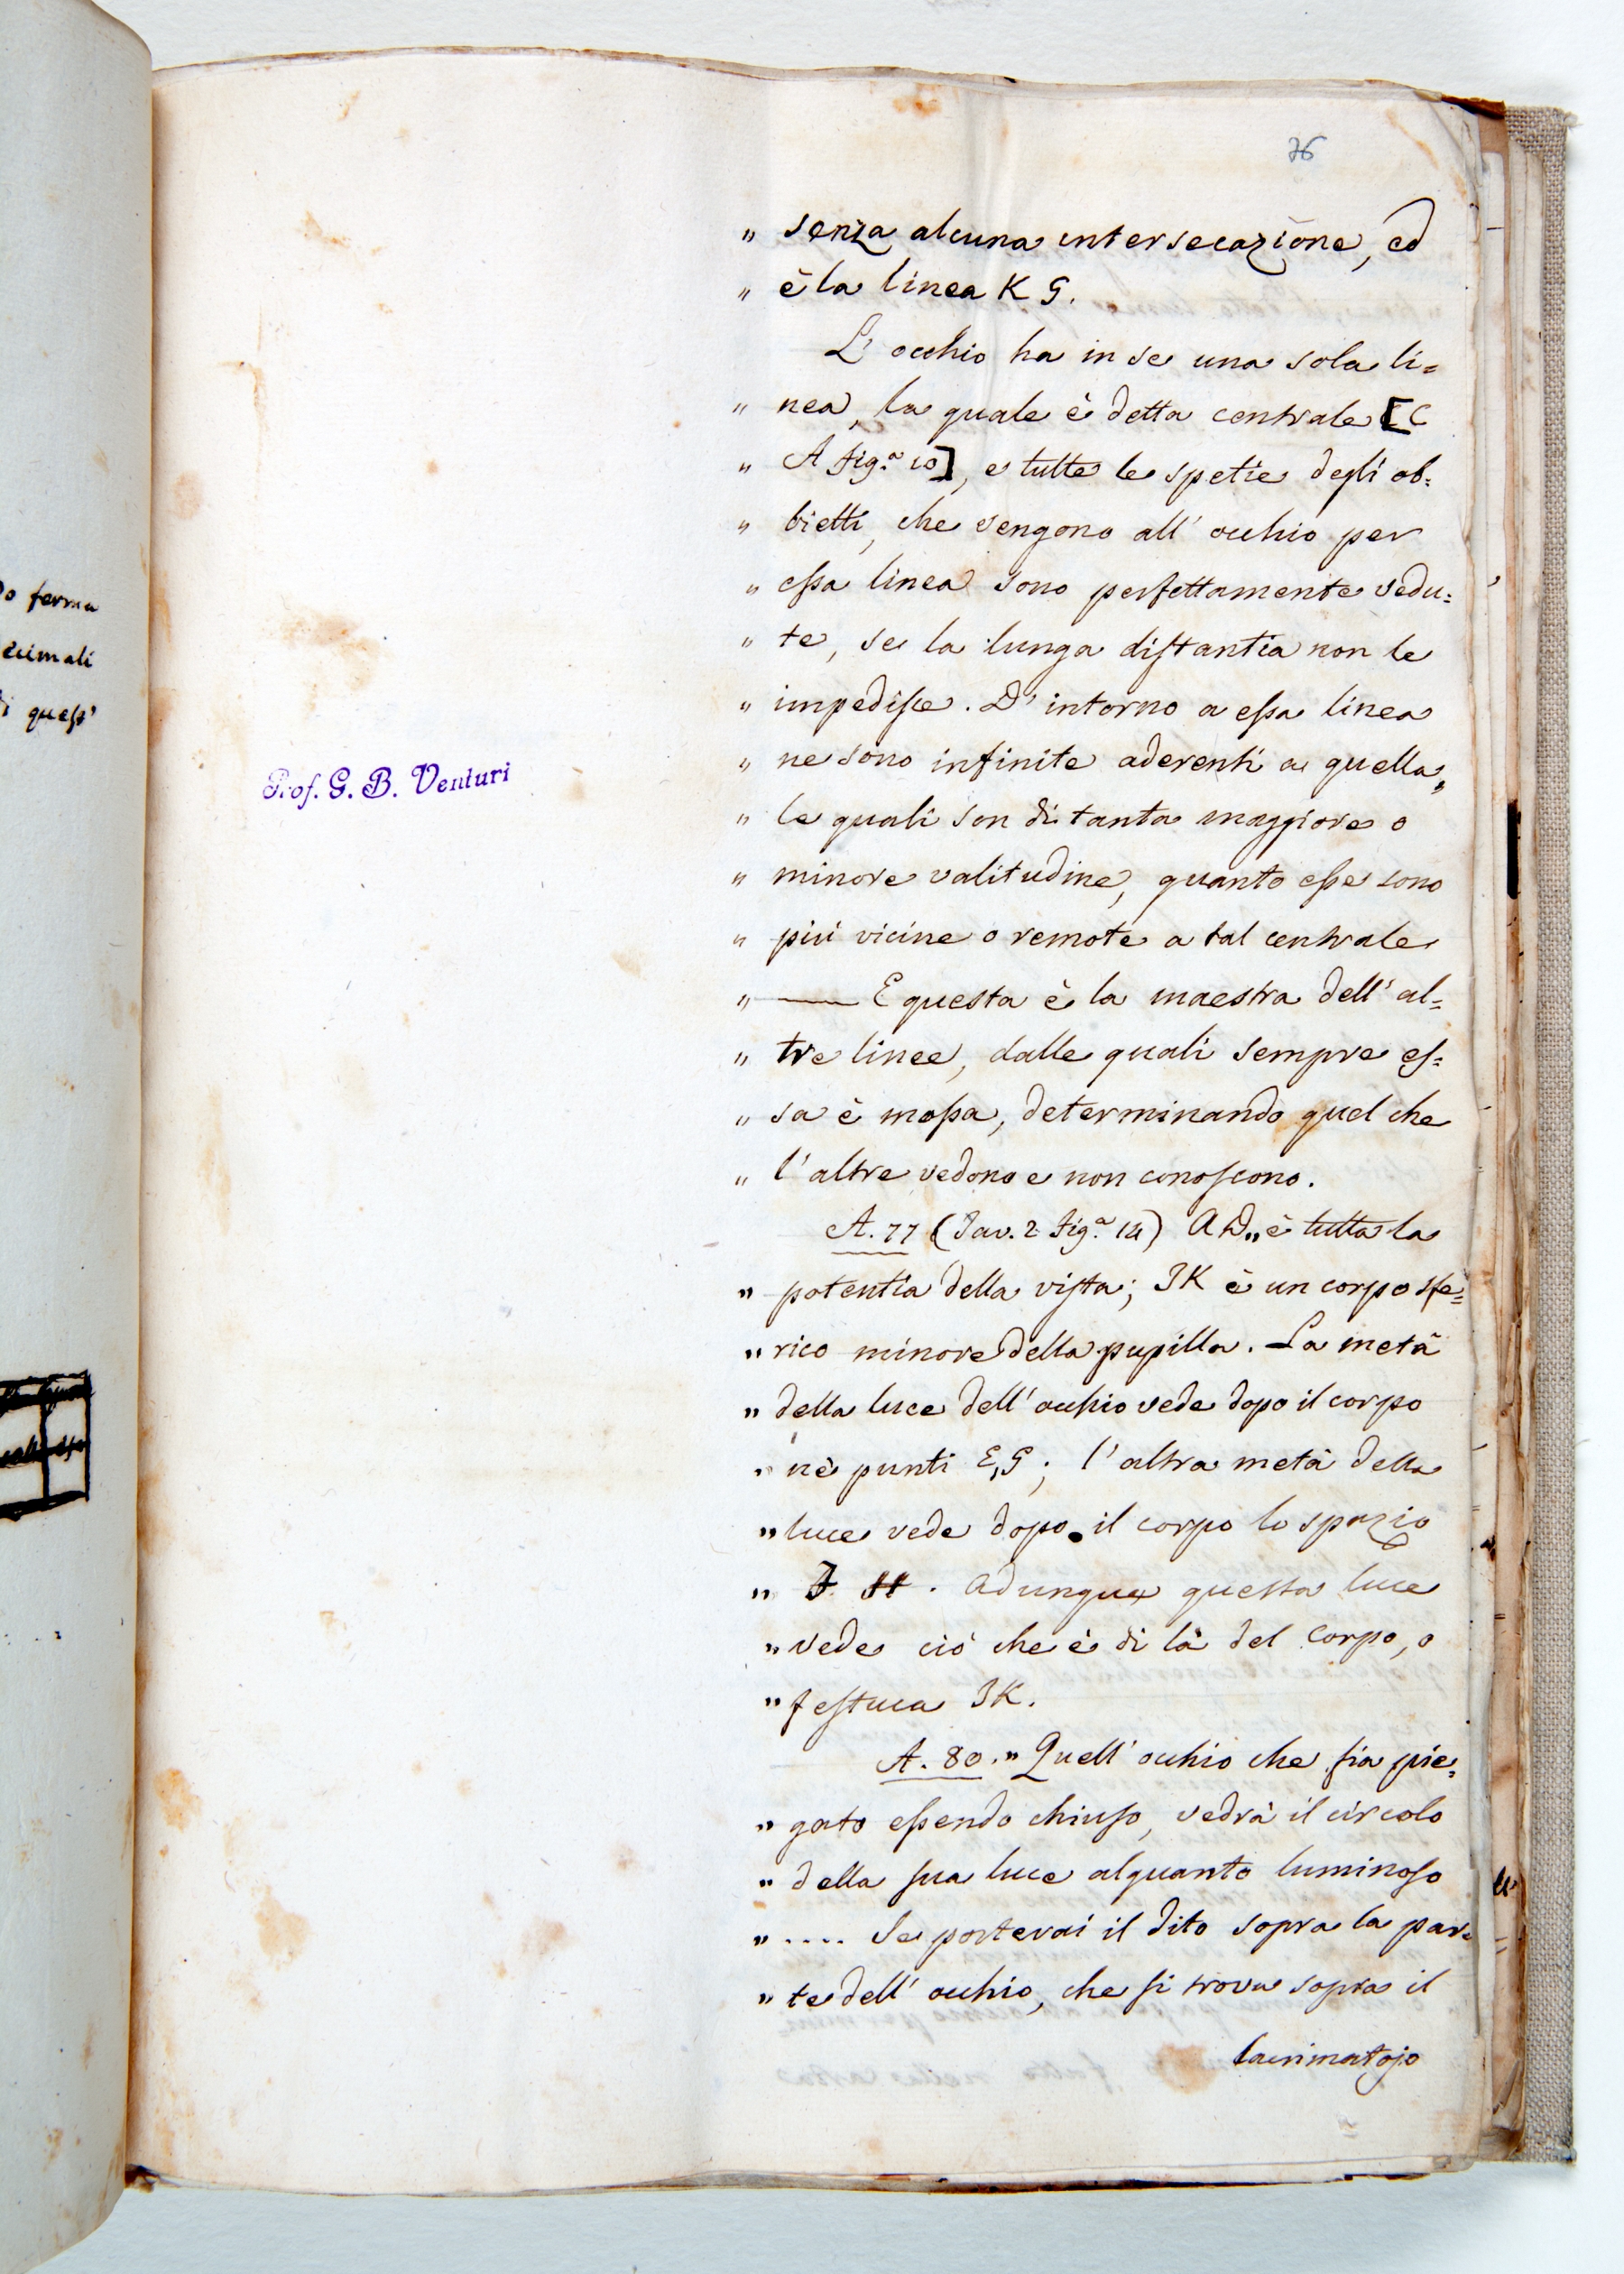 76
„ senza alcuna intersecazione, ed
„ è la linea K G.
L' occhio ha in se una sola li=
„ nea, la quale è detta centrale [C
„ A fig.ª 10], e tutte le spetie degli ob=
„ bietti, che vengono all' occhio per
„ essa linea sono perfettamente vedu=
„ te, se la lunga distantia non le
„ impedisce. D' intorno a essa linea
„ ne sono infinite aderenti a quella,
„ le quali son di tanta maggiore o
„ minore valitudine, quanto esse sono
„ più vicine o remote a tal centrale
„ —— E questa è la maestra dell' al=
„ tre linee, dalle quali sempre es=
„ sa è mossa, determinando quel che
„ l' altre vedono e non conoscono.
A. 77 (Tav. 2 fig.ª 14) A D „ è tutta la
„ potentia della vista; I K è un corpo sfe=
„ rico minore della pupilla. La metà
„ della luce dell' occhio vede dopo il corpo
„ nè punti E, G; l' altra metà della
„ luce vede dopo il corpo lo spazio
„ . Adunque questa luce
„ vede ciò che è di là del corpo, o
„ festuca I K.
A. 80. „ Quell' occhio che sia pie=
„ gato essendo chiuso, vedrà il circolo
„ della sua luce alquanto luminoso
„ .... Se porterai il dito sopra la par=
„ te dell' occhio, che si trova sopra il
lacrimatojo
Prof. G. B. Venturi
do ferma
ecimali
di quest'